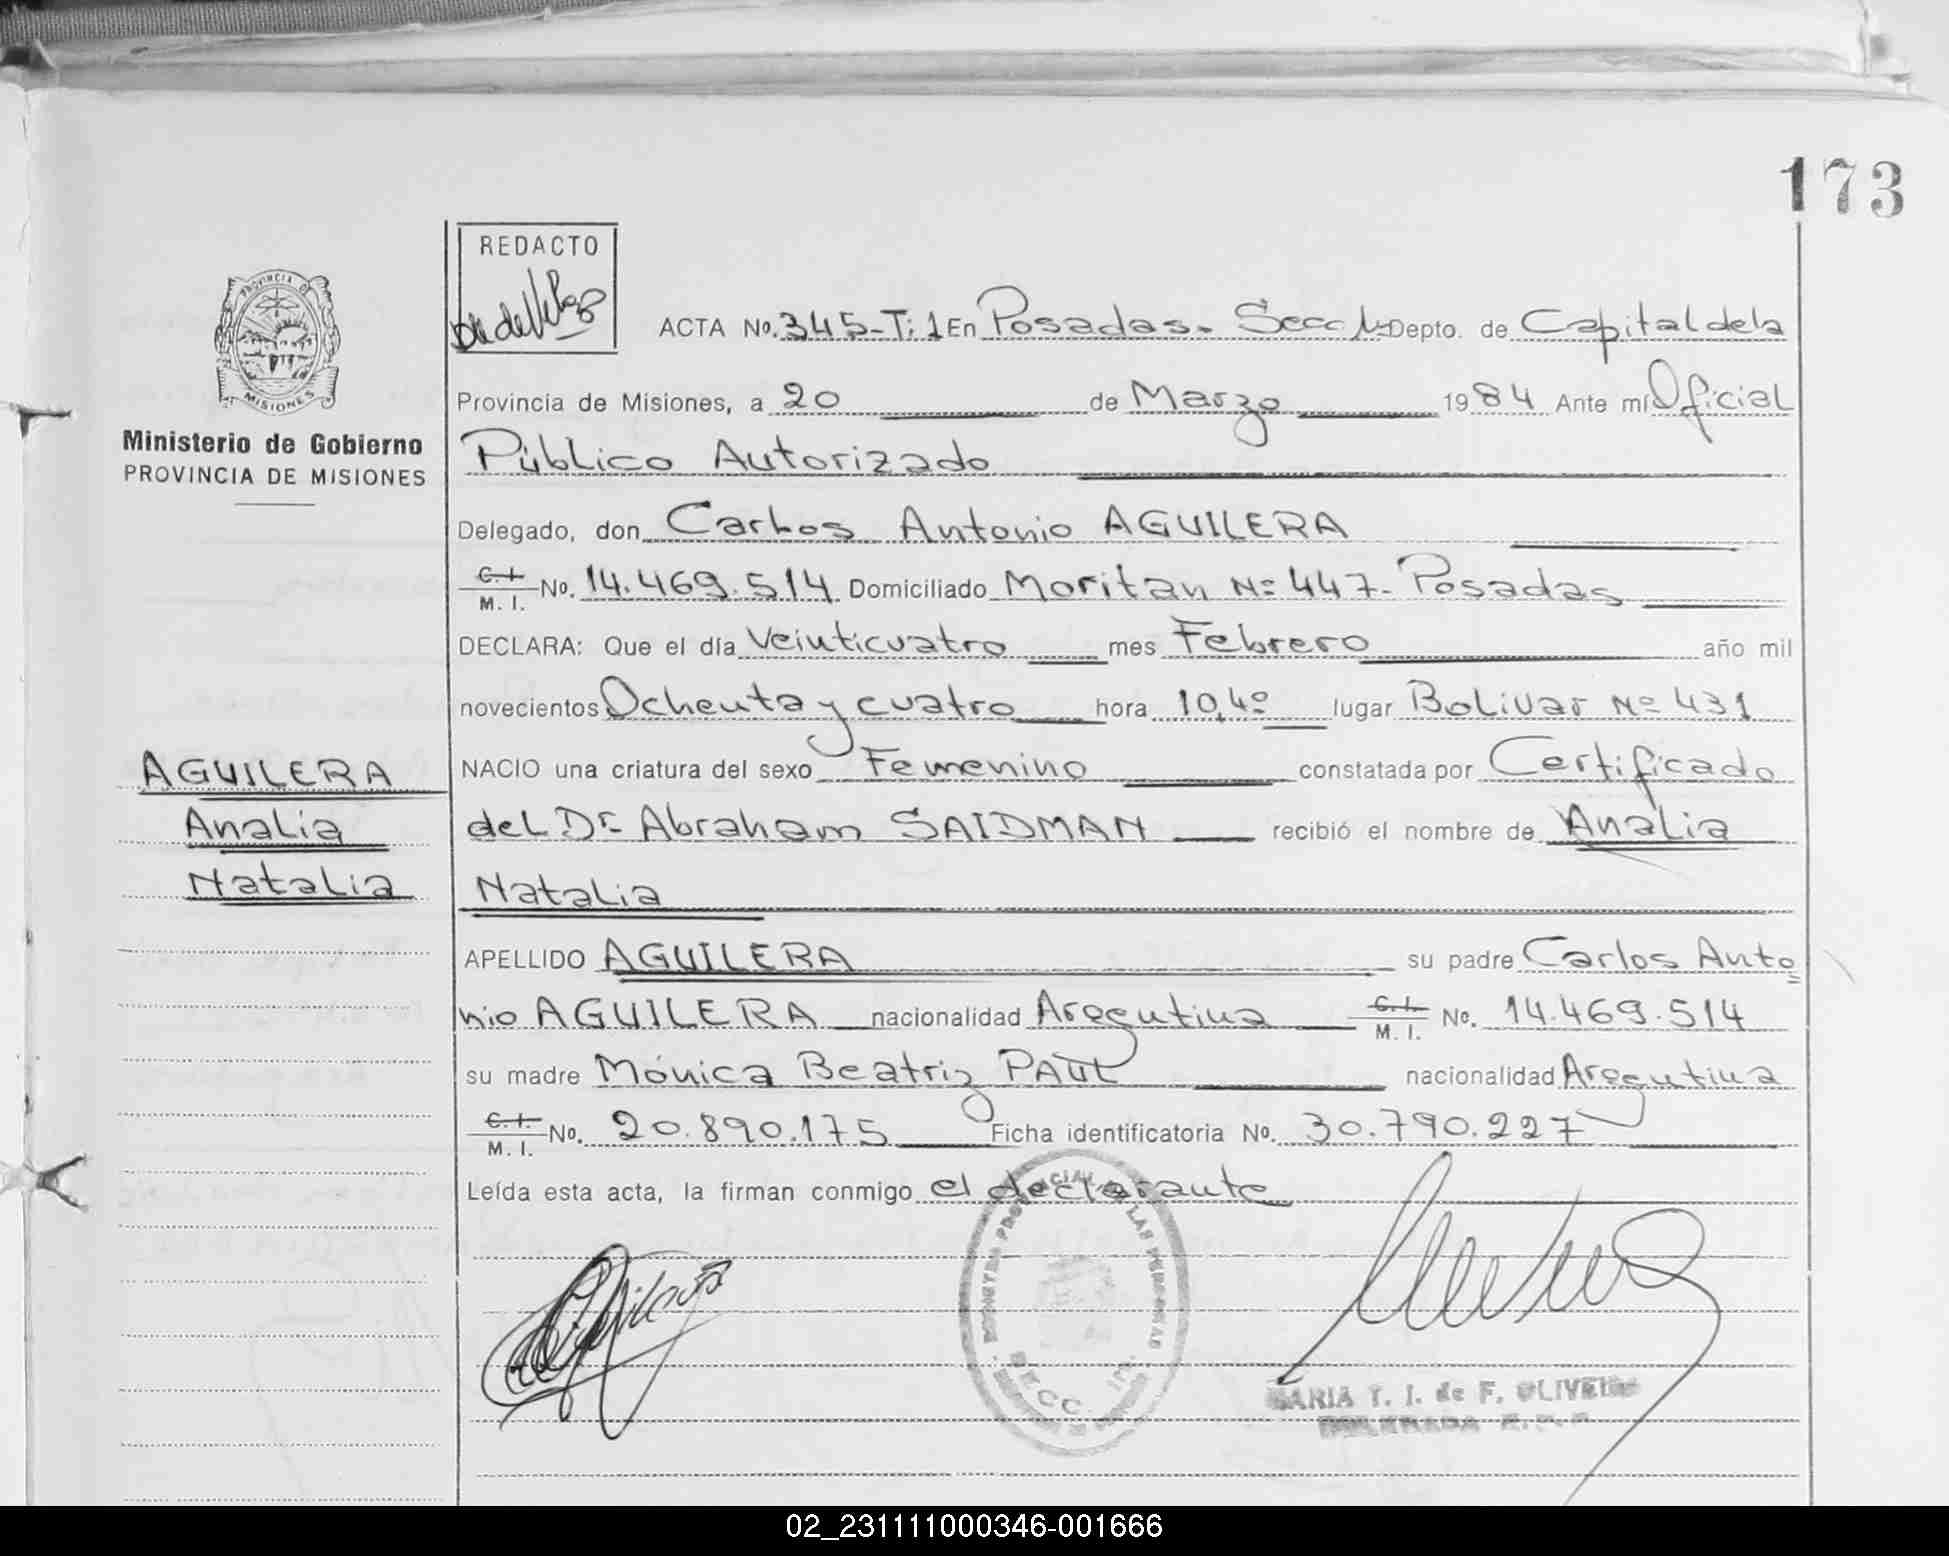 173
REDACTO
ACTA No. 345-T: 1 En Posadas. Secc 1 Depto. de Capital de la
PROVINCIA D
MISIONES
Provincia de Misiones, a 20 de Marzo 1984 Ante mí Oficial
Ministerio de Gobierno
PROVINCIA DE MISIONES
Público Autorizado
Delegado, don Carlos Antonio AGUILERA
C. I. M. I. No. 14.469.514 Domiciliado Moritan Nº 447- Posadas
DECLARA: Que el día Veinticuatro mes Febrero año mil
novecientos Ochenta y cuatro hora 10,40 lugar Bolivar Nº 431
AGUILERA
NACIO una criatura del sexo Femenino constatada por Certificado
Analia
del Dr Abraham SAIDMAN recibió el nombre de Analia
Natalia
Natalia
APELLIDO AGUILERA su padre Carlos Anto
nio AGUILERA nacionalidad Argentina C. I. M. I. No. 14.469.514
su madre Mónica Beatriz PAUL nacionalidad Argentina
C. I. M. I. No. 20.890.175 Ficha identificatoria No. 30.790.227
Leída esta acta, la firman conmigo el declarante
MARIA T. I. de F. OLIVEIRA
DELEGADA
02_231111000346-001666